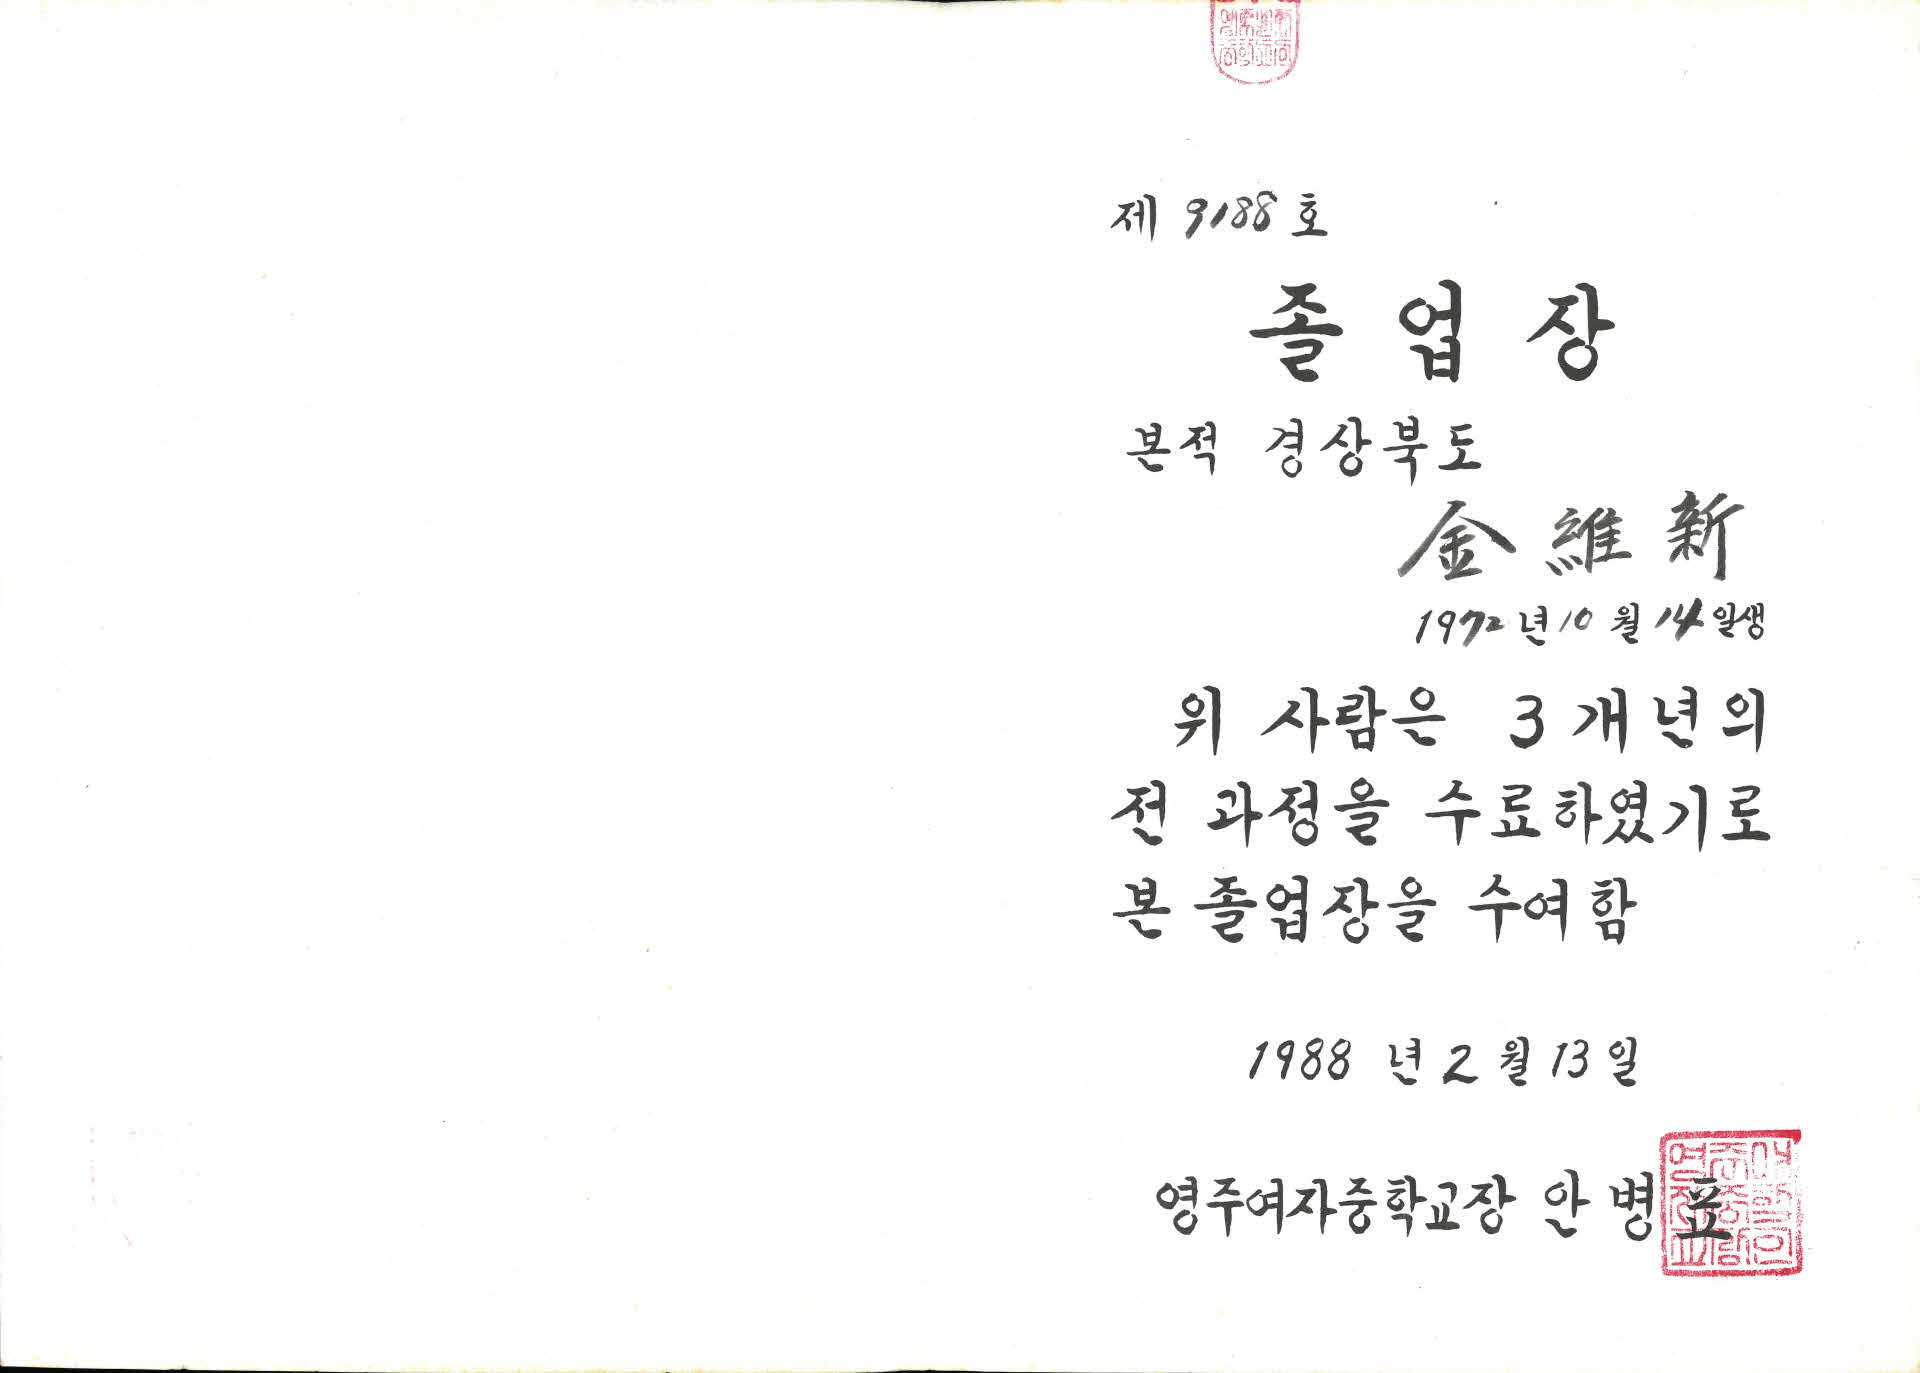 제 9188 호
졸업장
본적 경상북도
金維新
1972년 10월 14일생
위 사람은 3개년의
전 과정을 수료하였기로
본 졸업장을 수여함
1988년 2월 13일
영주여자중학교장 안병표